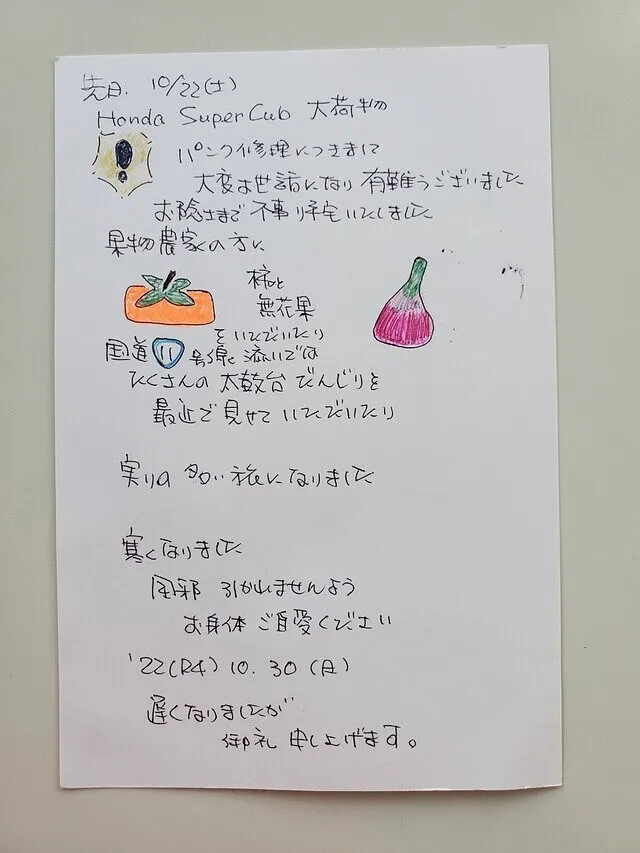 先日. 10/22(土)
Honda SuperCub 大荷物
パンク修理につきまして
大変お世話になり 有難うございました
お陰さまで 不事リ宅いたしました
果物農家の方に
柿と
無花果
をいただいたり
国道 11 号線に 添いでは
たくさんの 太鼓台 だんじりを
最近で 見せて いただいたり
実りの 多い 旅になりました
寒くなりました
風邪 引かれませんよう
お身体 ご自愛ください
'22(R4) 10. 30 (日)
遅くなりましたが
御礼 申し上げます。